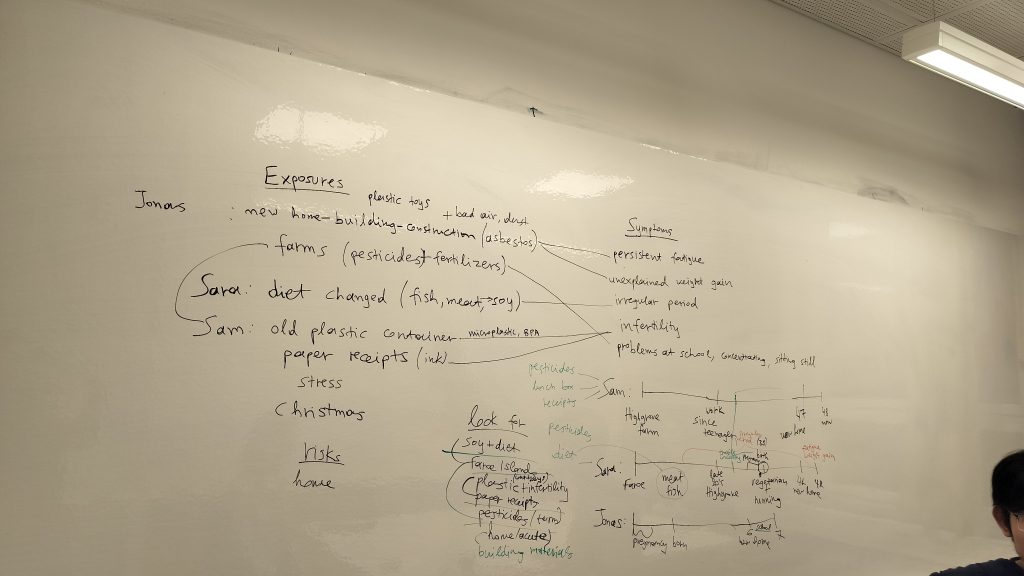 Exposures
plastic toys
+ bad air, dust
Jonas : new home-building-construction (asbestos)
farms (pesticides + fertilizers)
Sara: diet changed (fish, meat, → soy)
Sam: old plastic container microplastic, BPA
paper receipts (ink)
stress
Christmas
risks
home
Symptoms
persistent fatigue
unexplained weight gain
irregular period
infertility
problems at school, concentrating, sitting still
look for
soy + diet
Faroe Island
plastic + infertility
paper receipts
pesticides / farm
home (acute)
building materials
pesticides
lunch box
receipts
Sam:
Highgrove farm
work since teenager
47 new home
48 now
pesticides
diet
Sara:
Faroe
meat fish
late 20's Highgrove
vegetarian
running
new home
fatigue
weight gain
Jonas:
pregnancy
born
6
new home
school
7